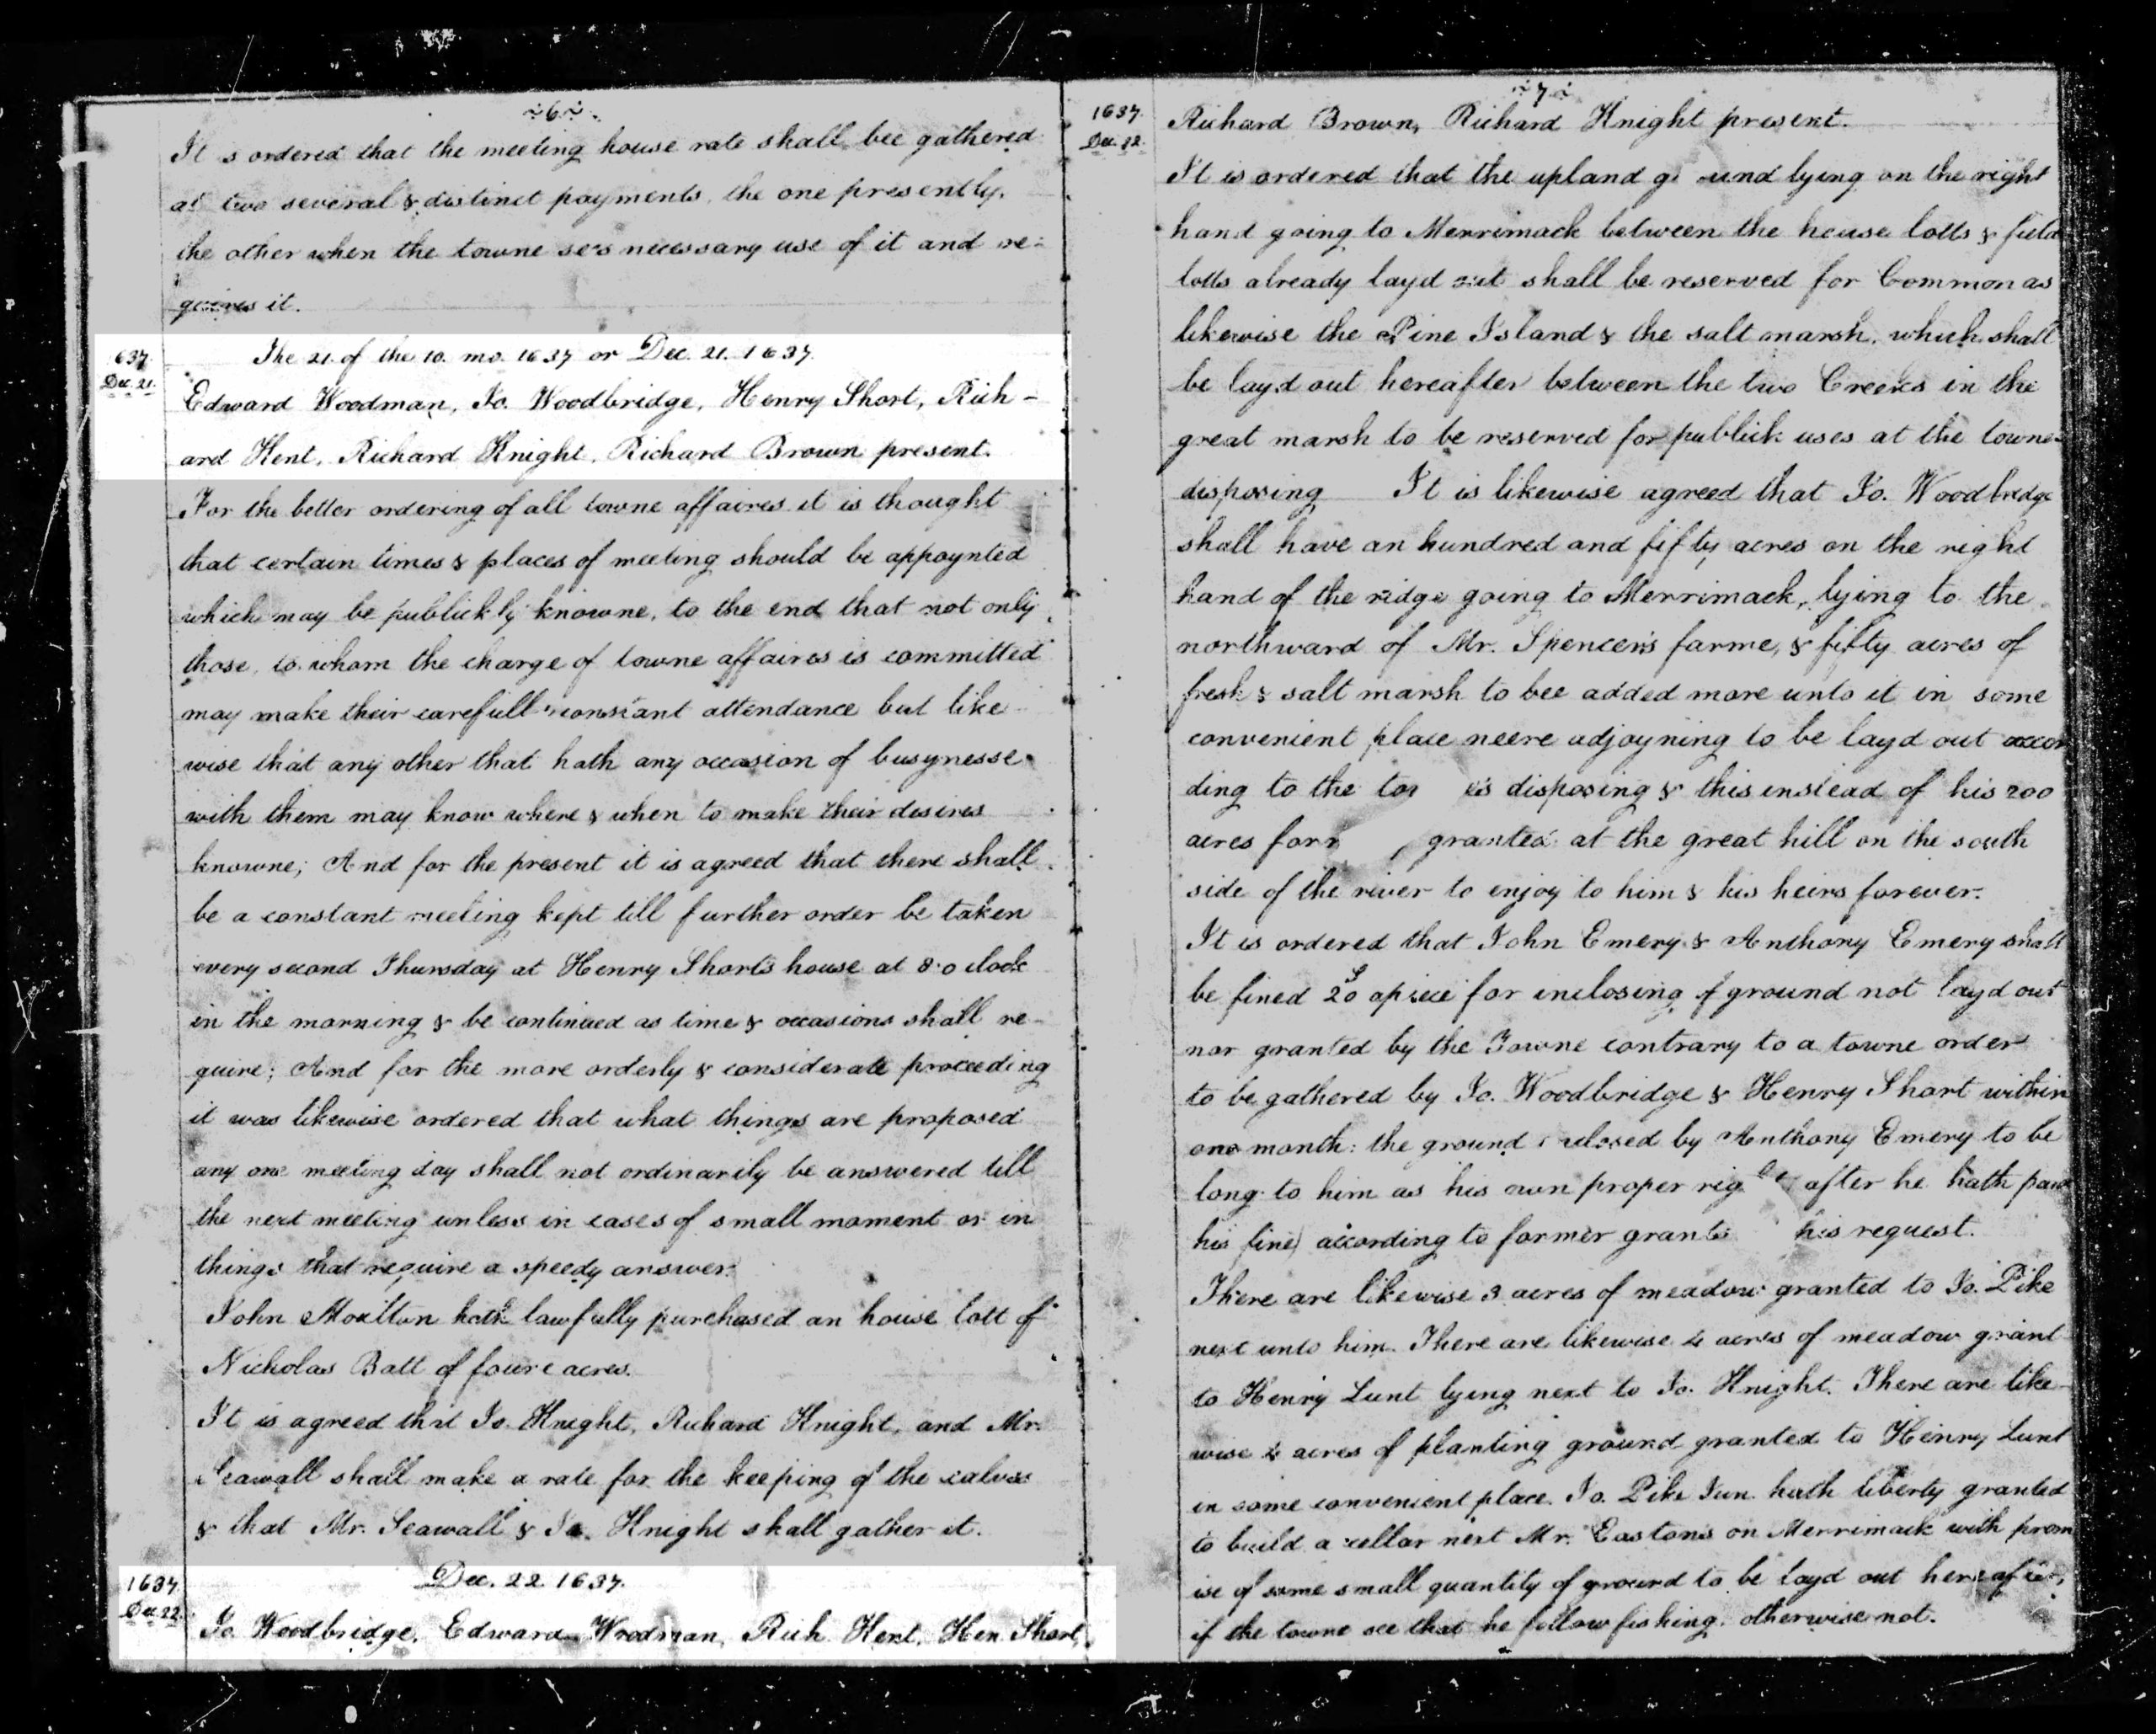 ~6~
It is ordered that the meeting house rate shall bee gathered
at two several & distinct payments, the one presently,
the other when the towne sees necessary use of it and re-
quires it.
637.
Dec. 21.
The 21. of the 10. mo. 1637 or Dec. 21. 1637.
Edward Woodman, Jo. Woodbridge, Henry Short, Rich-
ard Kent, Richard Knight, Richard Brown present.
For the better ordering of all towne affaires it is thought
that certain times & places of meeting should be appoynted
which may be publickly knowne, to the end that not only
those, to whom the charge of towne affaires is committed
may make their carefull & constant attendance but like-
wise that any other that hath any occasion of busynesse
with them may know where & when to make their desires
knowne; And for the present it is agreed that there shall
be a constant meeting kept till further order be taken
every second Thursday at Henry Shorts house at 8. o clock
in the morning & be continued as time & occasions shall re-
quire; And for the more orderly & considerate proceeding
it was likewise ordered that what things are proposed
any one meeting day shall not ordinarily be answered till
the next meeting unless in cases of small moment or in
things that require a speedy answer.
John Moulton hath lawfully purchased an house lott of
Nicholas Batt of foure acres.
It is agreed that Jo. Knight, Richard Knight, and Mr.
Seawall shall make a rate for the keeping of the calves
& that Mr. Seawall & Jo. Knight shall gather it.
1637.
Dec. 22.
Dec. 22. 1637.
Jo Woodbridge, Edward Woodman, Rich Kent, Hen Short,
~7~
1637.
Dec. 22.
Richard Brown, Richard Knight present.
It is ordered that the upland g und lying on the right
hand going to Merrimack between the house lotts & field
lotts already layd out shall be reserved for Common as
likewise the Pine Island & the salt marsh, which shall
be layd out hereafter between the two Creeks in the
great marsh to be reserved for publick uses at the townes
disposing It is likewise agreed that Jo. Woodbridge
shall have an hundred and fifty acres on the right
hand of the ridge going to Merrimack, lying to the
northward of Mr. Spencer's farme, & fifty acres of
fresh & salt marsh to bee added more unto it in some
convenient place neere adjoyning to be layd out accor
ding to the to es disposing & this instead of his 200
acres for granted at the great hill on the south
side of the river to enjoy to him & his heirs forever.
It is ordered that John Emery & Anthony Emery shall
be fined 20s apiece for inclosing of ground not layd out
nor granted by the Towne contrary to a towne order
to be gathered by Jo. Woodbridge & Henry Short within
one month: the ground closed by Anthony Emery to be
long to him as his own proper rig after he hath paid
his fine) according to former grants his request.
There are likewise 3 acres of meadow granted to Jo. Pike
next unto him. There are likewise 4 acres of meadow grant
to Henry Lunt lying next to Jo. Knight. There are like-
wise 4 acres of planting ground granted to Henry Lunt
in some convenient place. Jo. Pike Jun. hath liberty granted
to build a cellar next Mr. Eastons on Merrimack with prom
ise of some small quantity of ground to be layd out hereafter,
if the towne see that he follow fishing, otherwise not.